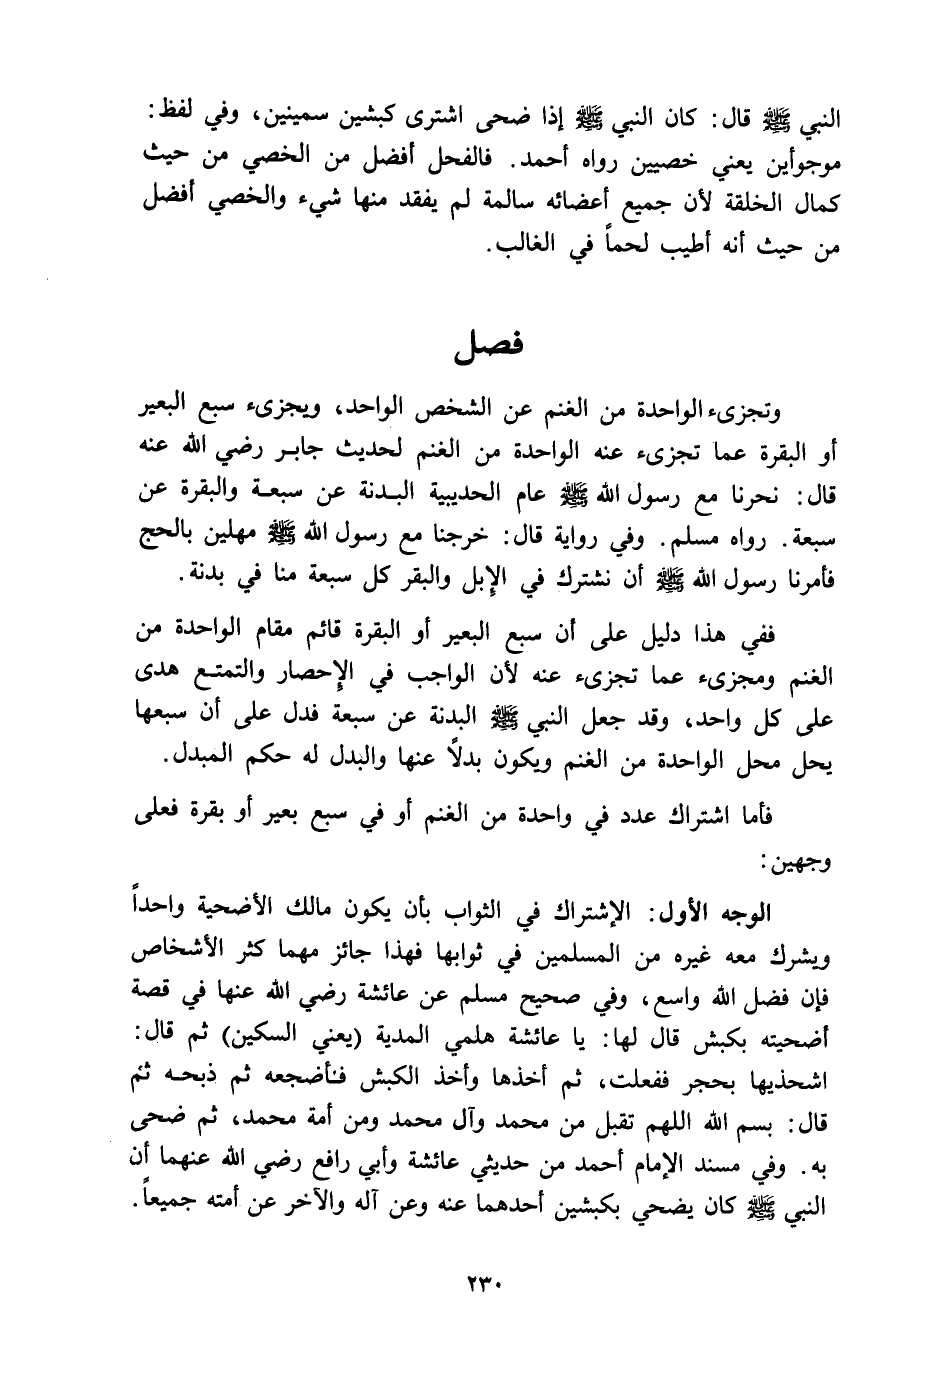 النبي ﷺ قال: كان النبي ﷺ إذا ضحى اشترى كبشين سمينين، وفي لفظ:
موجوأين يعني خصيين رواه أحمد. فالفحل أفضل من الخصي من حيث
كمال الخلقة لأن جميع أعضائه سالمة لم يفقد منها شيء والخصي أفضل
من حيث أنه أطيب لحماً في الغالب.
فصل
وتجزىء الواحدة من الغنم عن الشخص الواحد، ويجزىء سبع البعير
أو البقرة عما تجزىء عنه الواحدة من الغنم لحديث جابر رضي الله عنه
قال: نحرنا مع رسول الله ﷺ عام الحديبية البدنة عن سبعة والبقرة عن
سبعة. رواه مسلم. وفي رواية قال: خرجنا مع رسول الله ﷺ مهلين بالحج
فأمرنا رسول الله ﷺ أن نشترك في الإبل والبقر كل سبعة منا في بدنة.
ففي هذا دليل على أن سبع البعير أو البقرة قائم مقام الواحدة من
الغنم ومجزىء عما تجزىء عنه لأن الواجب في الإحصار والتمتع هدى
على كل واحد، وقد جعل النبي ﷺ البدنة عن سبعة فدل على أن سبعها
يحل محل الواحدة من الغنم ويكون بدلاً عنها والبدل له حكم المبدل.
فأما اشتراك عدد في واحدة من الغنم أو في سبع بعير أو بقرة فعلى
وجهين:
الوجه الأول: الإشتراك في الثواب بأن يكون مالك الأضحية واحداً
ويشرك معه غيره من المسلمين في ثوابها فهذا جائز مهما كثر الأشخاص
فإن فضل الله واسع، وفي صحيح مسلم عن عائشة رضي الله عنها في قصة
أضحيته بكبش قال لها: يا عائشة هلمي المدية (يعني السكين) ثم قال:
اشحذيها بحجر ففعلت، ثم أخذها وأخذ الكبش فأضجعه ثم ذبحه ثم
قال: بسم الله اللهم تقبل من محمد وآل محمد ومن أمة محمد، ثم ضحى
به. وفي مسند الإمام أحمد من حديثي عائشة وأبي رافع رضي الله عنهما أن
النبي ﷺ كان يضحي بكبشين أحدهما عنه وعن آله والآخر عن أمته جميعاً.
٢٣٠